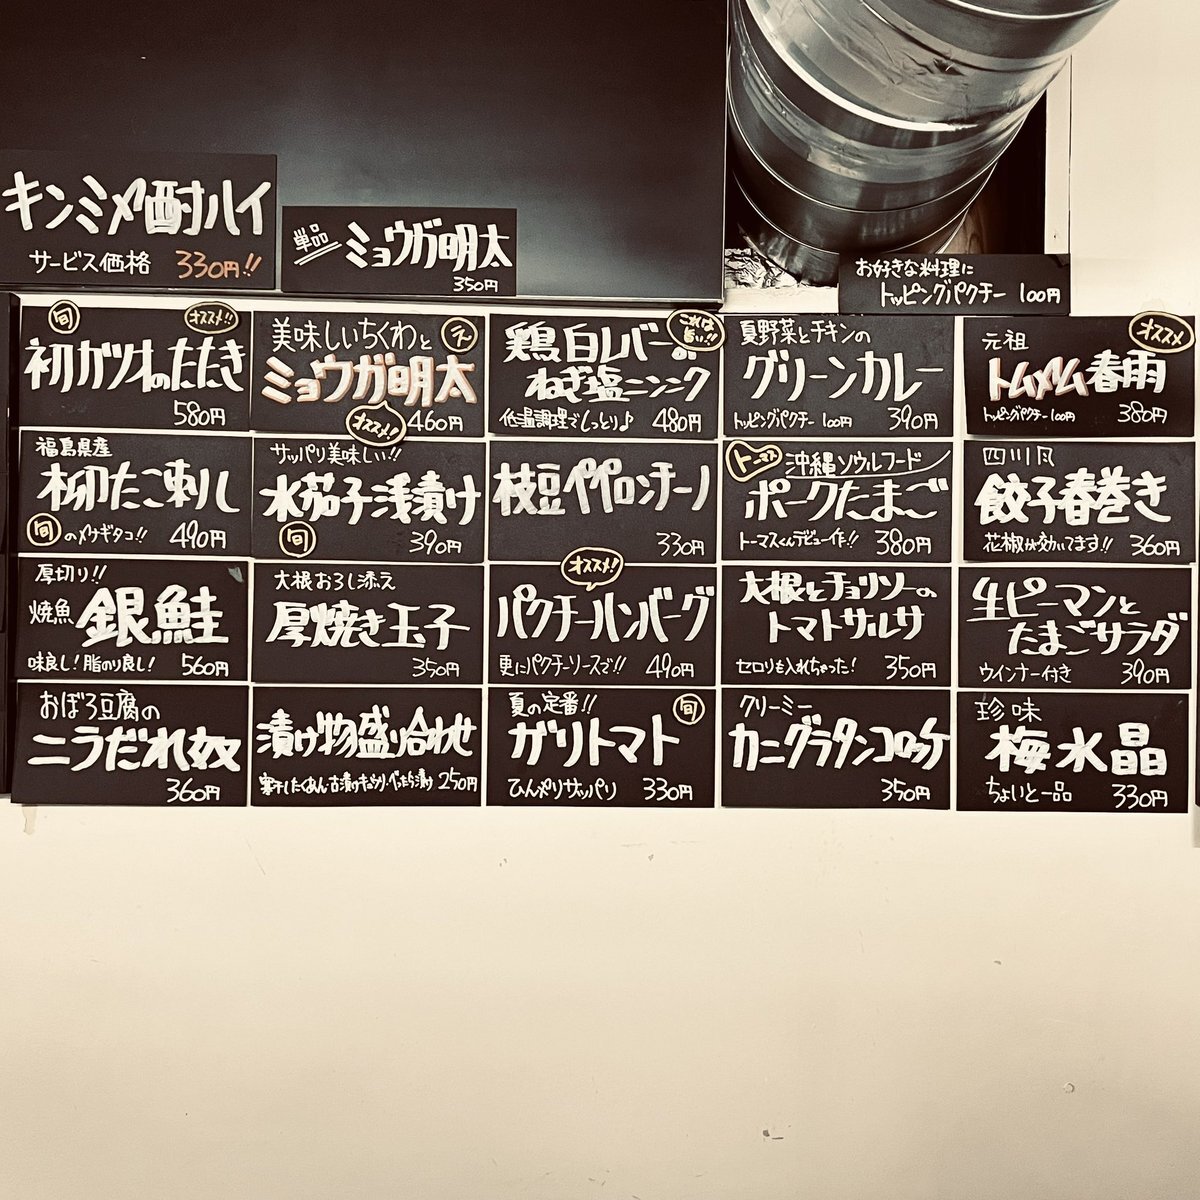 キンミヤ酎ハイ
サービス価格 330円!!
単品
ミョウガ明太
350円
お好きな料理に
トッピングパクチー 100円
旬
オススメ!!
初ガツオのたたき
580円
美味しいちくわと
ミョウガ明太
オススメ!!
460円
これは
旨い!!
鶏白レバーの
ねぎ塩ニンニク
低温調理でしっとり♪ 480円
夏野菜とチキンの
グリーンカレー
トッピングパクチー 100円 390円
オススメ
元祖
トムヤム春雨
トッピングパクチー 100円 380円
福島県産
柳たこ刺し
旬のヤナギタコ!! 490円
サッパリ美味しい!!
水茄子浅漬け
旬
390円
枝豆ペペロンチーノ
330円
トーマス
沖縄ソウルフード
ポークたまご
トーマスくんデビュー作!! 380円
四川風
餃子春巻き
花椒が効いてます!! 360円
厚切り!!
焼魚 銀鮭
味良し!脂のり良し! 560円
大根おろし添え
厚焼き玉子
350円
オススメ!!
パクチーハンバーグ
更にパクチーソースで!! 490円
大根とチョリソーの
トマトサルサ
セロリも入れちゃった! 350円
生ピーマンと
たまごサラダ
ウインナー付き 390円
おぼろ豆腐の
ニラだれ奴
360円
漬け物盛り合わせ
たくあん・古漬けキュウリ・べったら漬け 250円
夏の定番!!
旬
ガリトマト
ひんやりサッパリ 330円
クリーミー
カニグラタンコロッケ
350円
珍味
梅水晶
ちょいと一品 330円